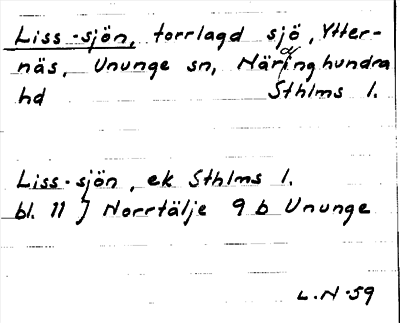 Liss-sjön, torrlagd sjö, Ytter-
näs, Ununge sn, Närdinghundra
hd Sthlms l.
Liss-sjön, ek Sthlms l.
bl. 11 J Norrtälje 9 b Ununge
L.N-59